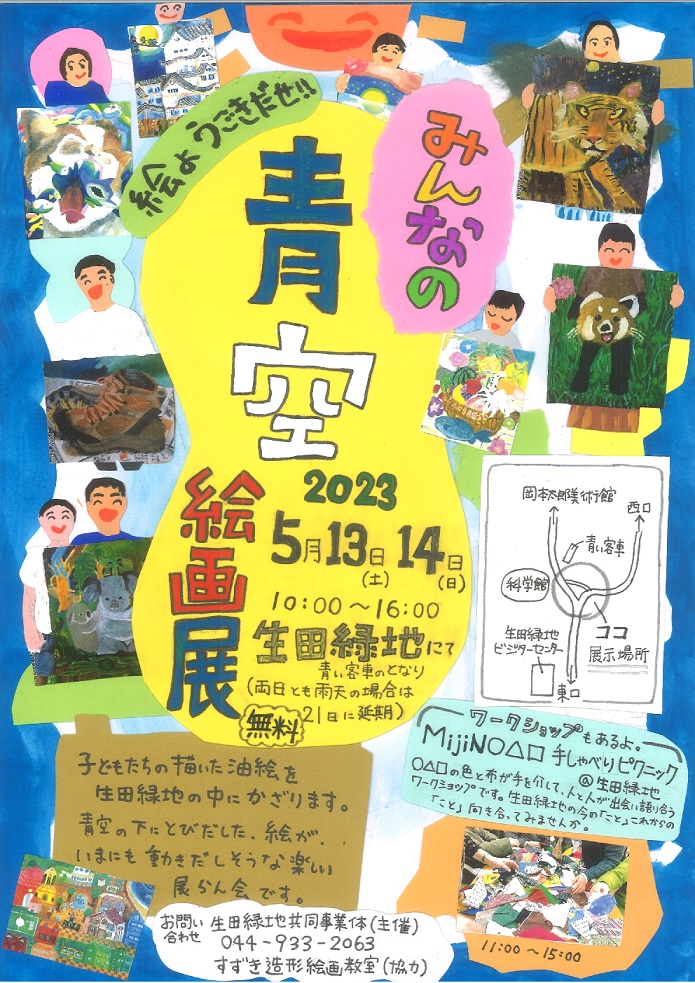 絵よ うごきだせ!!
みんなの
青空
絵画展
2023
5月13日(土) 14日(日)
10:00～16:00
生田緑地にて
青い客車のとなり
(両日とも雨天の場合は
21日に延期)
無料
岡本太郎美術館
西口
青い客車
科学館
ココ
展示場所
生田緑地
ビジターセンター
東口
ワークショップもあるよ。
MijiNO△□ 手しゃべりピクニック
@生田緑地
○△□の色と布が手を介して、人と人が出会い語り合う
ワークショップです。生田緑地の今の「こと」これからの
「こと」向き合ってみませんか。
11:00～15:00
子どもたちの描いた油絵を
生田緑地の中にかざります。
青空の下にとびだした、絵が、
いまにも動きだしそうな楽しい
展らん会です。
お問い合わせ
生田緑地共同事業体(主催)
044-933-2063
すずき造形絵画教室(協力)